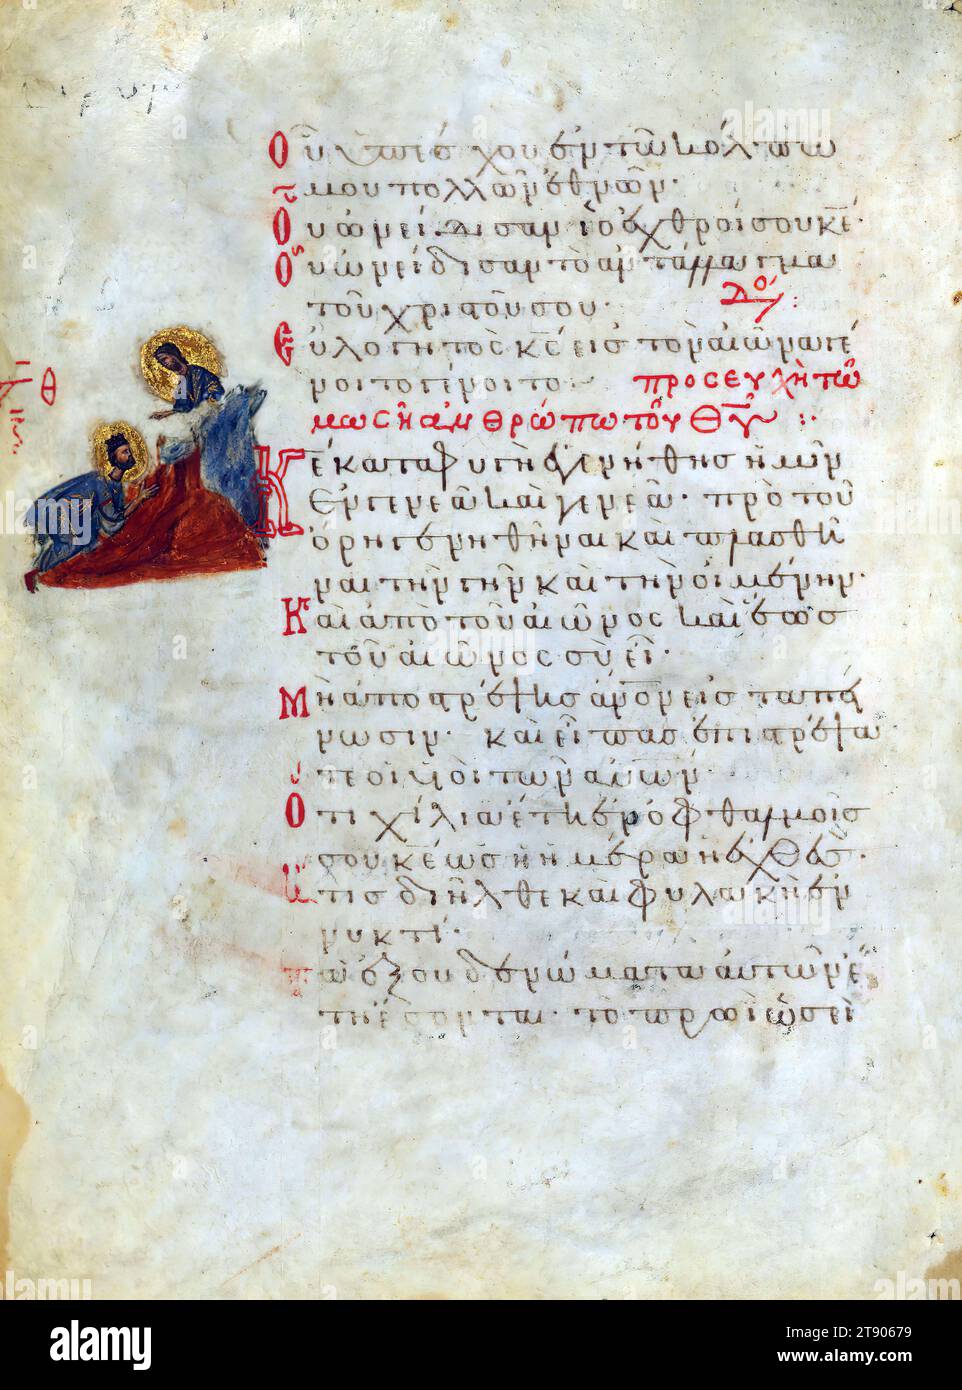 Οὗ ὑπέσχον ἐν τῶ κόλπω
μου πολλῶν ἐθνῶν·
Οὗ ὠνείδισαν οἱ ἐχθροί σου κε·
Οὗ ὠνείδισαν τὸ ἀντάλλαγμα
τοῦ χριστοῦ σου·
Εὐλογητὸς κς εἰς τὸν αἰῶνα γέ
νοιτο γένοιτο· προσευχὴ τῶ
μωσῆ ἀνθρώπω τοῦ θυ
Κε καταφυγὴ ἐγενήθης ἡμῖν
ἐν γενεᾶ καὶ γενεᾶ· πρὸ τοῦ
ὄρη γενηθῆναι καὶ πλασθῆ
ναι τὴν γῆν καὶ τὴν οἰκουμένην·
Καὶ ἀπὸ τοῦ αἰῶνος καὶ ἕως
τοῦ αἰῶνος σὺ εἶ·
Μὴ ἀποστρέψης ἄνον εἰς ταπεί
νωσιν· καὶ εἶπας ἐπιστρέψα
τε οἱ υἱοὶ τῶν ανων·
Ὅτι χίλια ἔτη ἐν ὀφθαλμοῖς
σου κε ὡς ἡ ἡμέρα ἡ ἐχθὲς
ἥτις διῆλθε καὶ φυλακὴ ἐν
νυκτί·
Τὰ ἐξουδενώματα αὐτῶν ἔ
τη ἔσονται· τὸ πρωῒ ὡσεὶ
alamy
Image ID: 2T90679
www.alamy.com